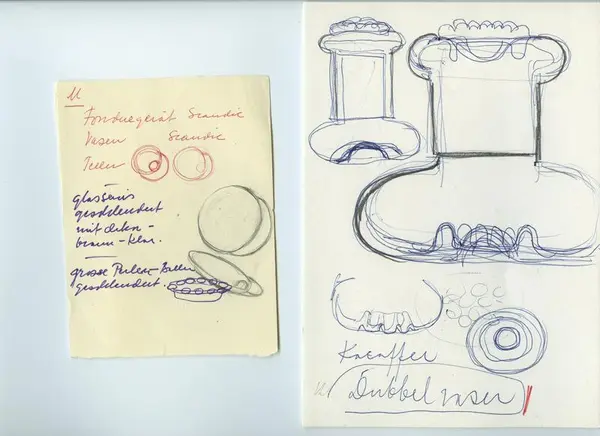 Fonduegerät Scandic
Vasen Scandic
Teller
geschleudert
mit dekor -
braun - klar.
grosse Perlen - Teller
geschleudert.
Karaffer
Dubbel vaser